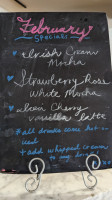 February
SPECIALS
Irish Cream
Mocha
Strawberry Rose
White Mocha
Cherry
Vanilla Latte
* all drinks come hot or
iced
* add whipped cream
to any drink